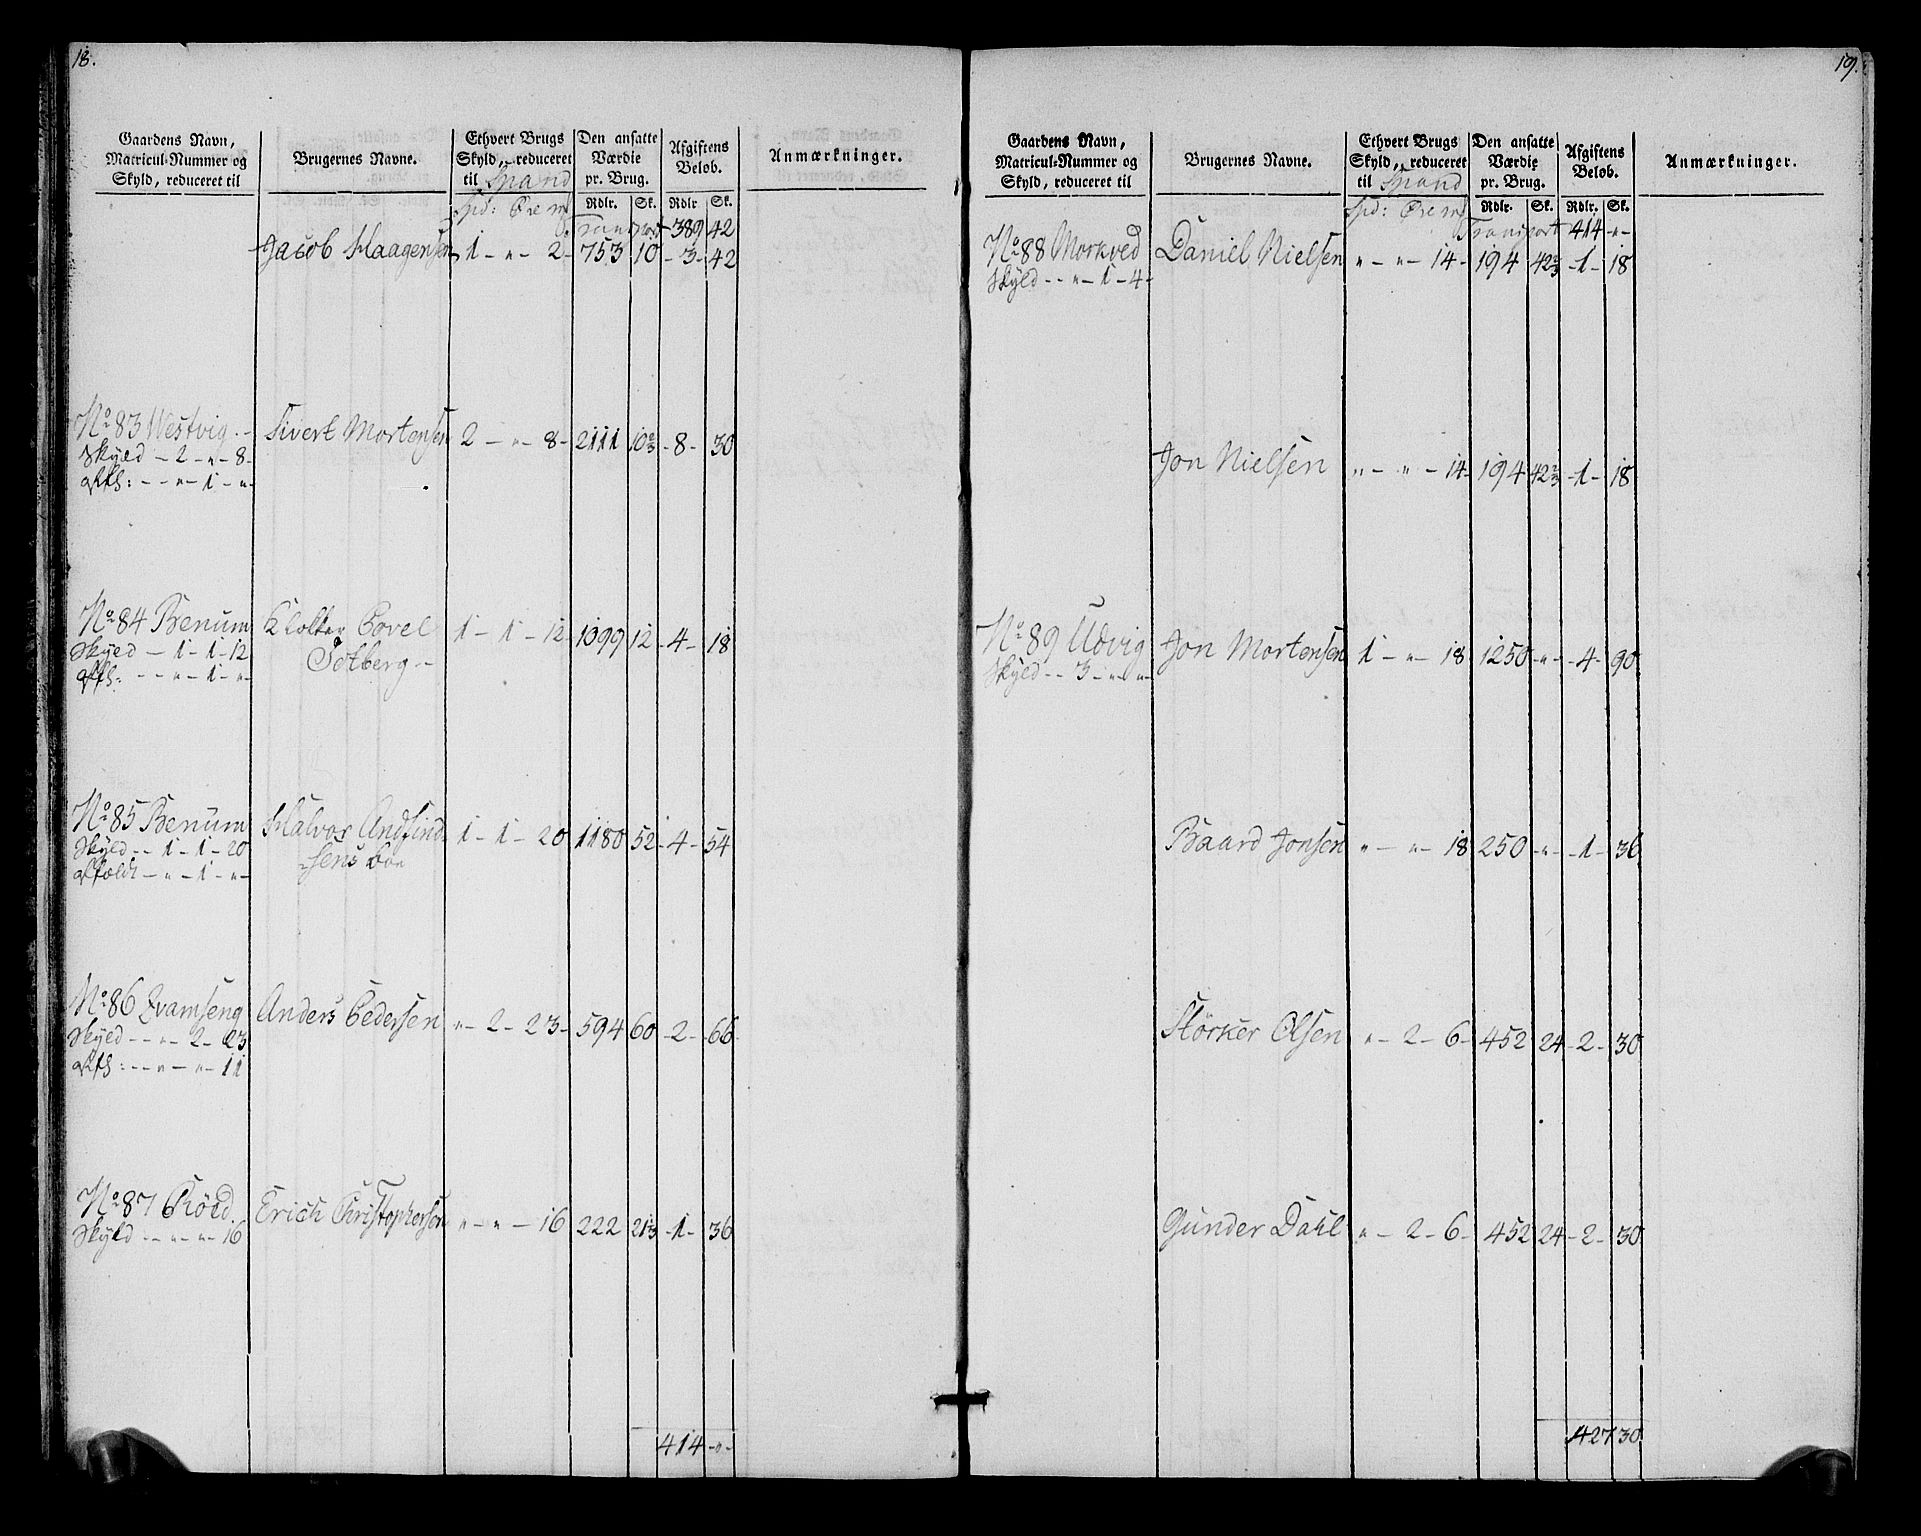 18.
Gaardens Navn, Matricul-Nummer og Skyld, reduceret til
Brugernes Navne.
Ethvert Brugs Skyld, reduceret til Spand
Den ansatte Værdie pr. Brug.
Afgiftens Beløb.
Anmærkninger.
Spd: Øre ml
Rdlr. Sk. Rdlr Sk.
Transport 389 42
Jacob Haagensen 1 - " - 2 - 753 10 - 3 - 42
No 83 Westvig - Sivert Mortensen 2 - " - 8 - 2111 10 2/3 - 8 - 30
Skyld - 2 - " - 8 -
Afh: - - " - 1 - " -
No 84 Benum Klokker Povel 1 - 1 - 12 - 1099 12 - 4 - 18
Skyld - 1 - 1 - 12 Sotberg -
Afh: - - " - 1 - " -
No 85 Benum Halvor Andfind- 1 - 1 - 20 1180 52 - 4 - 54
Skyld - - 1 - 1 - 20 sens boe
Afholdt - " - 1 - " -
No 86 Qvamseng Anders Pedersen " - 2 - 23 - 594 60 - 2 - 66
Skyld - - " - 2 - 23
Afh: - - " - " - 11
No 87 Røed. Erich Christophersen " - " - 16 222 21 1/3 - 1 - 36
Skyld - - " - " - 16
414 - " -
19.
Gaardens Navn, Matricul-Nummer og Skyld, reduceret til
Brugernes Navne.
Ethvert Brugs Skyld, reduceret til Spand
Den ansatte Værdie pr. Brug.
Afgiftens Beløb.
Anmærkninger.
Spd: Øre ml
Rdlr. Sk. Rdlr. Sk.
Transport 414 - " -
No 88 Morkved Daniel Nielsen " - " - 14 - 194 42 2/3 - 1 - 18
Skyld - - " - 1 - 4 -
Jon Nielsen " - " - 14 - 194 42 2/3 - 1 - 18
No 89 Udvig Jon Mortensen 1 - " - 18 1250 - " - - 4 - 90
Skyld - - 3 - " - " -
Baard Jonsen " - " - 18 250 - " - - 1 - 36
Størker Olsen " - 2 - 6 - 452 24 - 2 - 30
Gunder Dahl " - 2 - 6 - 452 24 - 2 - 30
427 30